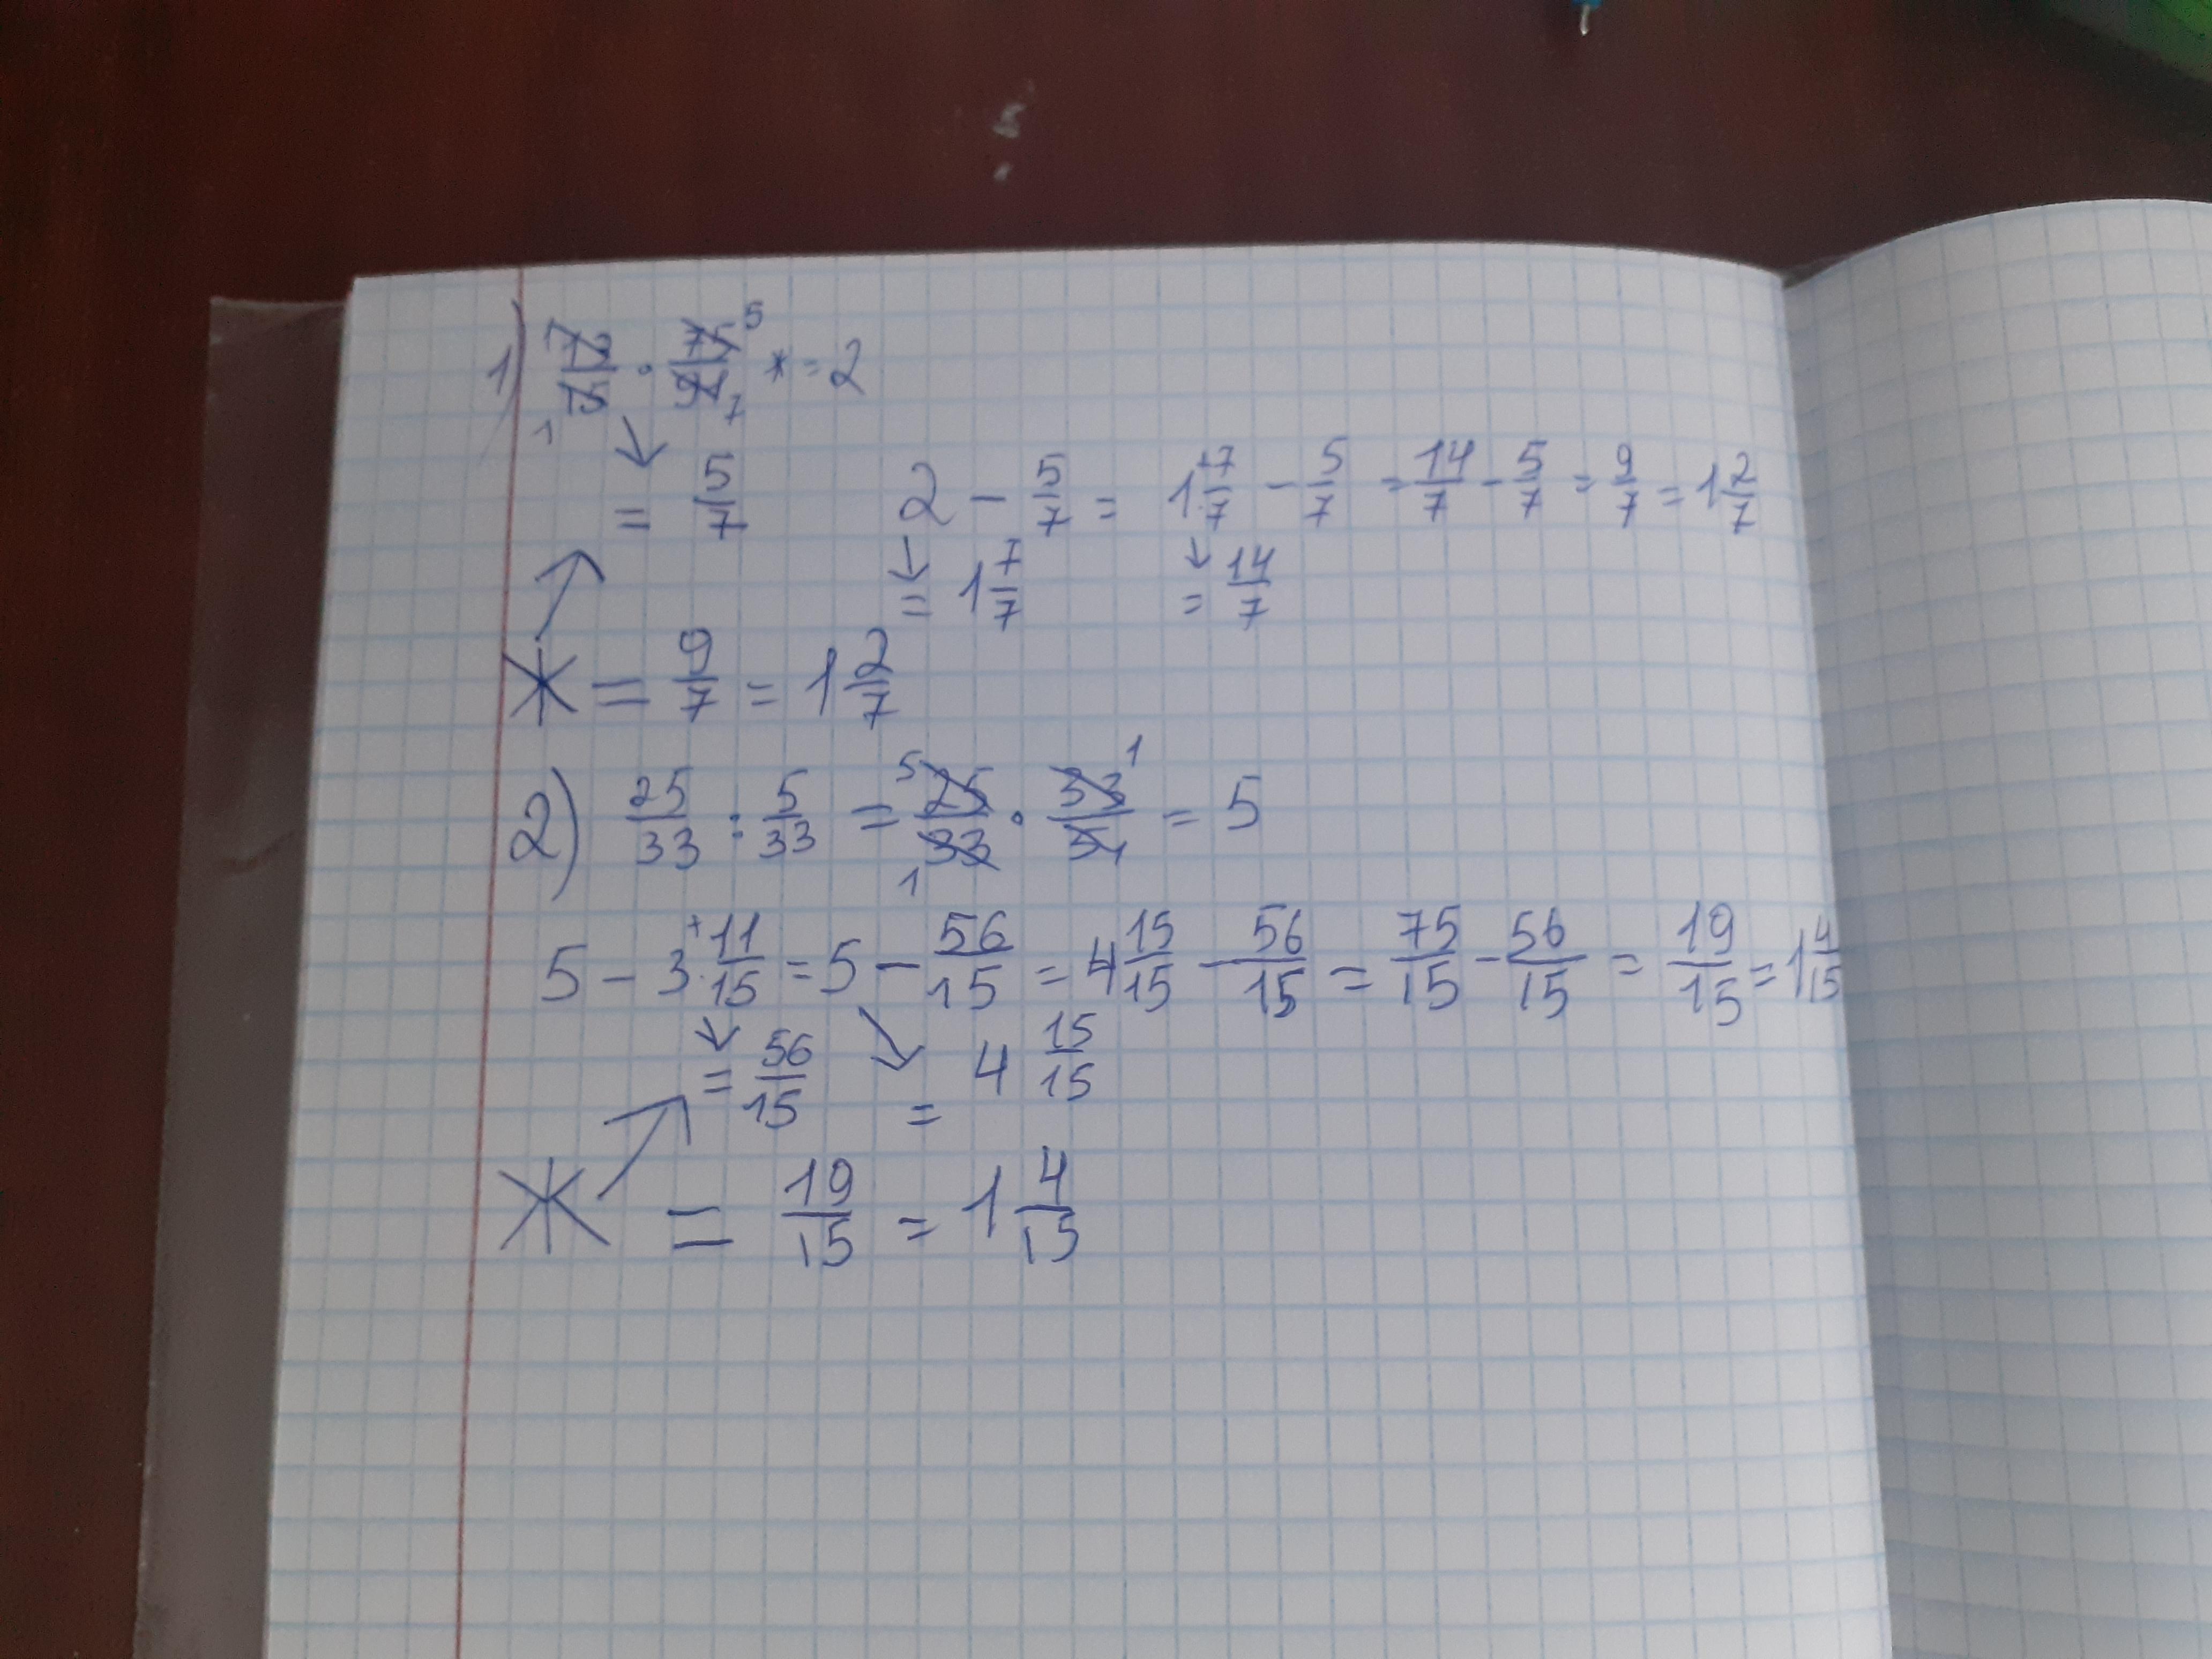 1) 13/15 · 75/91 * = 2
= 5/7 2 - 5/7 = 1 7/7 - 5/7 = 14/7 - 5/7 = 9/7 = 1 2/7
= 1 7/7 = 14/7
* = 9/7 = 1 2/7
2) 25/33 : 5/33 = 25/33 · 33/5 = 5
5 - 3 11/15 = 5 - 56/15 = 4 15/15 - 56/15 = 75/15 - 56/15 = 19/15 = 1 4/15
= 56/15 = 4 15/15
* = 19/15 = 1 4/15